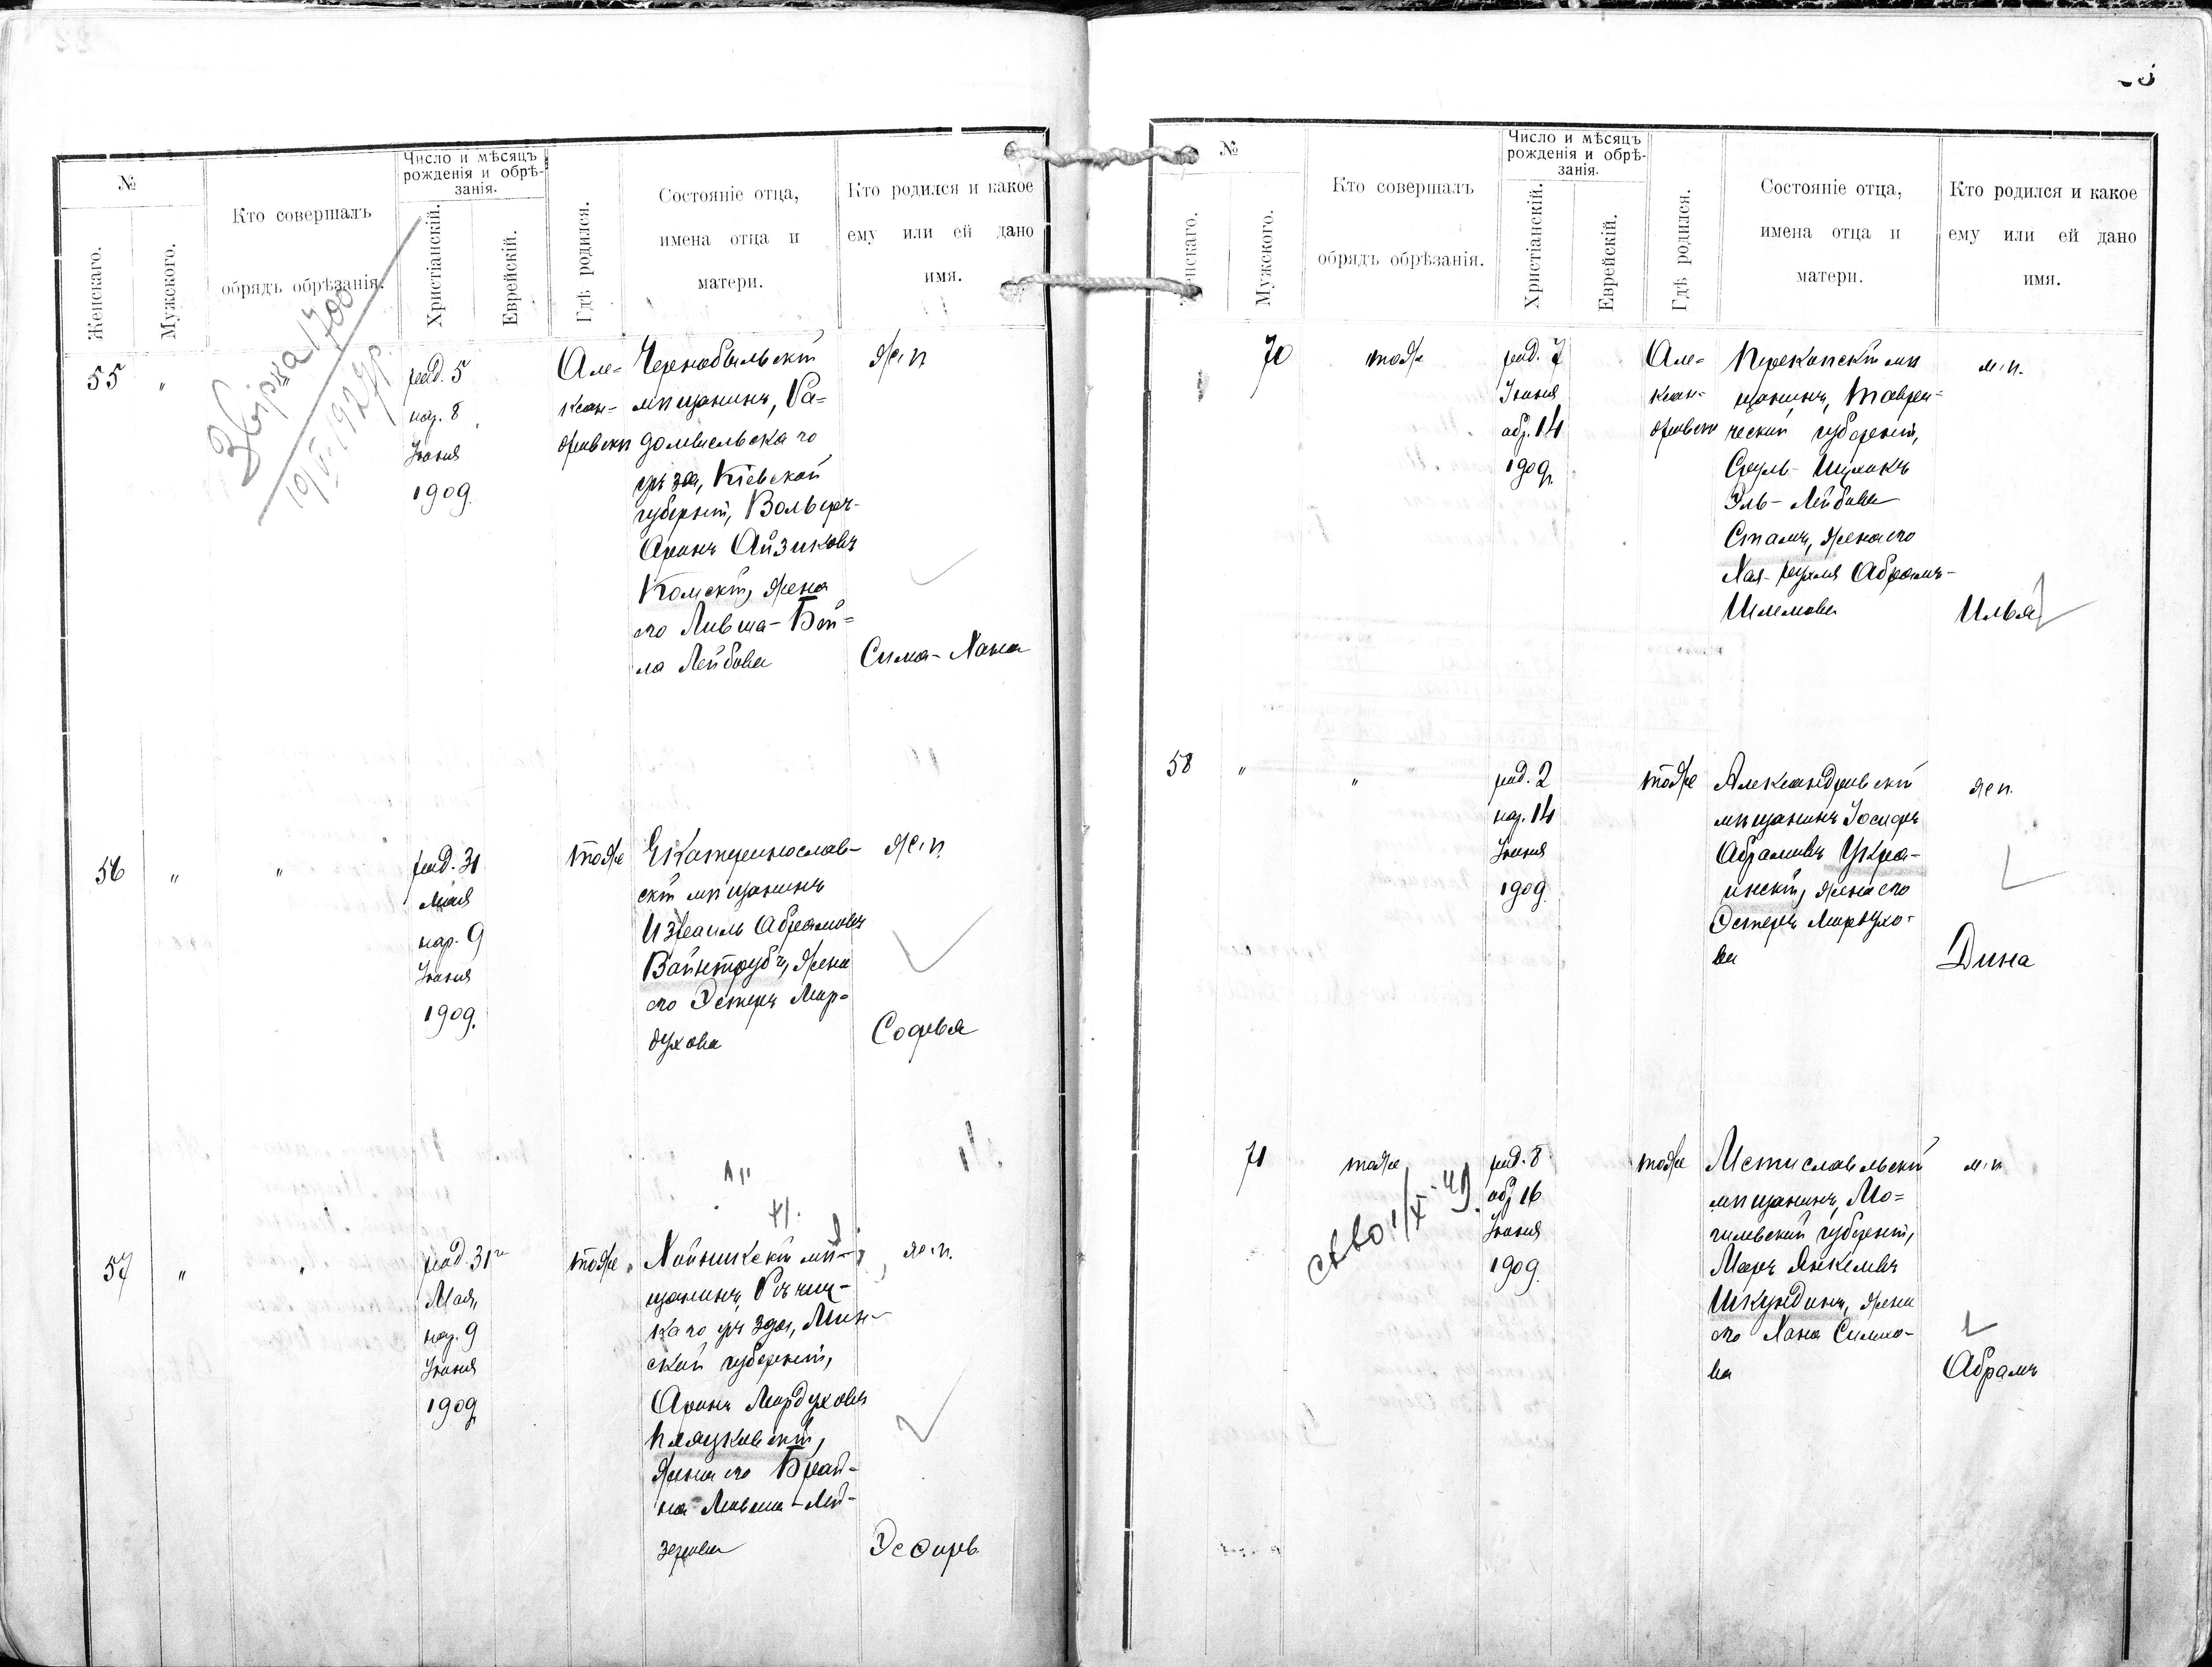 №
Женскаго.
Мужского.
Кто совершалъ
обрядъ обрѣзанія.
Число и мѣсяцъ
рожденія и обрѣ-
занія.
Христіанскій.
Еврейскій.
Гдѣ родился.
Состояніе отца,
имена отца и
матери.
Кто родился и какое
ему или ей дано
имя.
Збірка 1700
19/V 1927р.
55
"
род. 5
нар. 8
Іюня
1909
Але-
ксан-
дровскѣ
Чернобыльскій
мѣщанинъ, Ра-
домысльскаго
уѣзда, Кіевской
губерніи, Вольфъ-
Аронъ Айзиковъ
Комскій, жена
его Ливша-Бей-
ла Лейбова
ж. п.
Сима-Хана
56
"
"
род. 31
Мая
нар. 9
Іюня
1909.
тоже
Екатеринослав-
скій мѣщанинъ
Израиль Абрамовъ
Вайнтрубъ, жена
его Эстеръ Мор-
духова
ж. п.
Софья
57
"
"
род. 31го
Мая,
нар. 9
Іюня
1909
тоже
Хойникскій мѣ-
щанинъ, Рѣчиц-
каго уѣзда, Мин-
ской губерніи,
Аронъ Мордуховъ
Пляцковскій,
жена его Брай-
на Лившa-Лей-
зерова
ж. п.
Эсѳирь
№
Женскаго.
Мужского.
Кто совершалъ
обрядъ обрѣзанія.
Число и мѣсяцъ
рожденія и обрѣ-
занія.
Христіанскій.
Еврейскій.
Гдѣ родился.
Состояніе отца,
имена отца и
матери.
Кто родился и какое
ему или ей дано
имя.
70
тоже
род. 7
Іюня
обр. 14
1909
Але-
ксан-
дровскѣ
Перекопскій мѣ
щанинъ, Таври-
ческой губерніи,
Сруль-Ицхокъ
Эль-Лейбовъ
Стамъ, жена его
Хая-Рухля Абрамъ-
Шлемова
м. п.
Илья
58
"
"
род. 2
нар. 14
Іюня
1909
тоже
Александровскій
мѣщанинъ Іосифъ
Абрамовъ Укра-
инскій, жена его
Эстеръ Мордухо-
ва
ж п.
Дина
71
тоже
св-во 1/X-49.
род. 8
обр 16
Іюня
1909
тоже
Мстиславльскій
мѣщанинъ, Мо-
гилевской губерніи,
Мееръ Янкелевъ
Шкундинъ, жена
его Хана Симхо-
ва
м. п.
Абрамъ